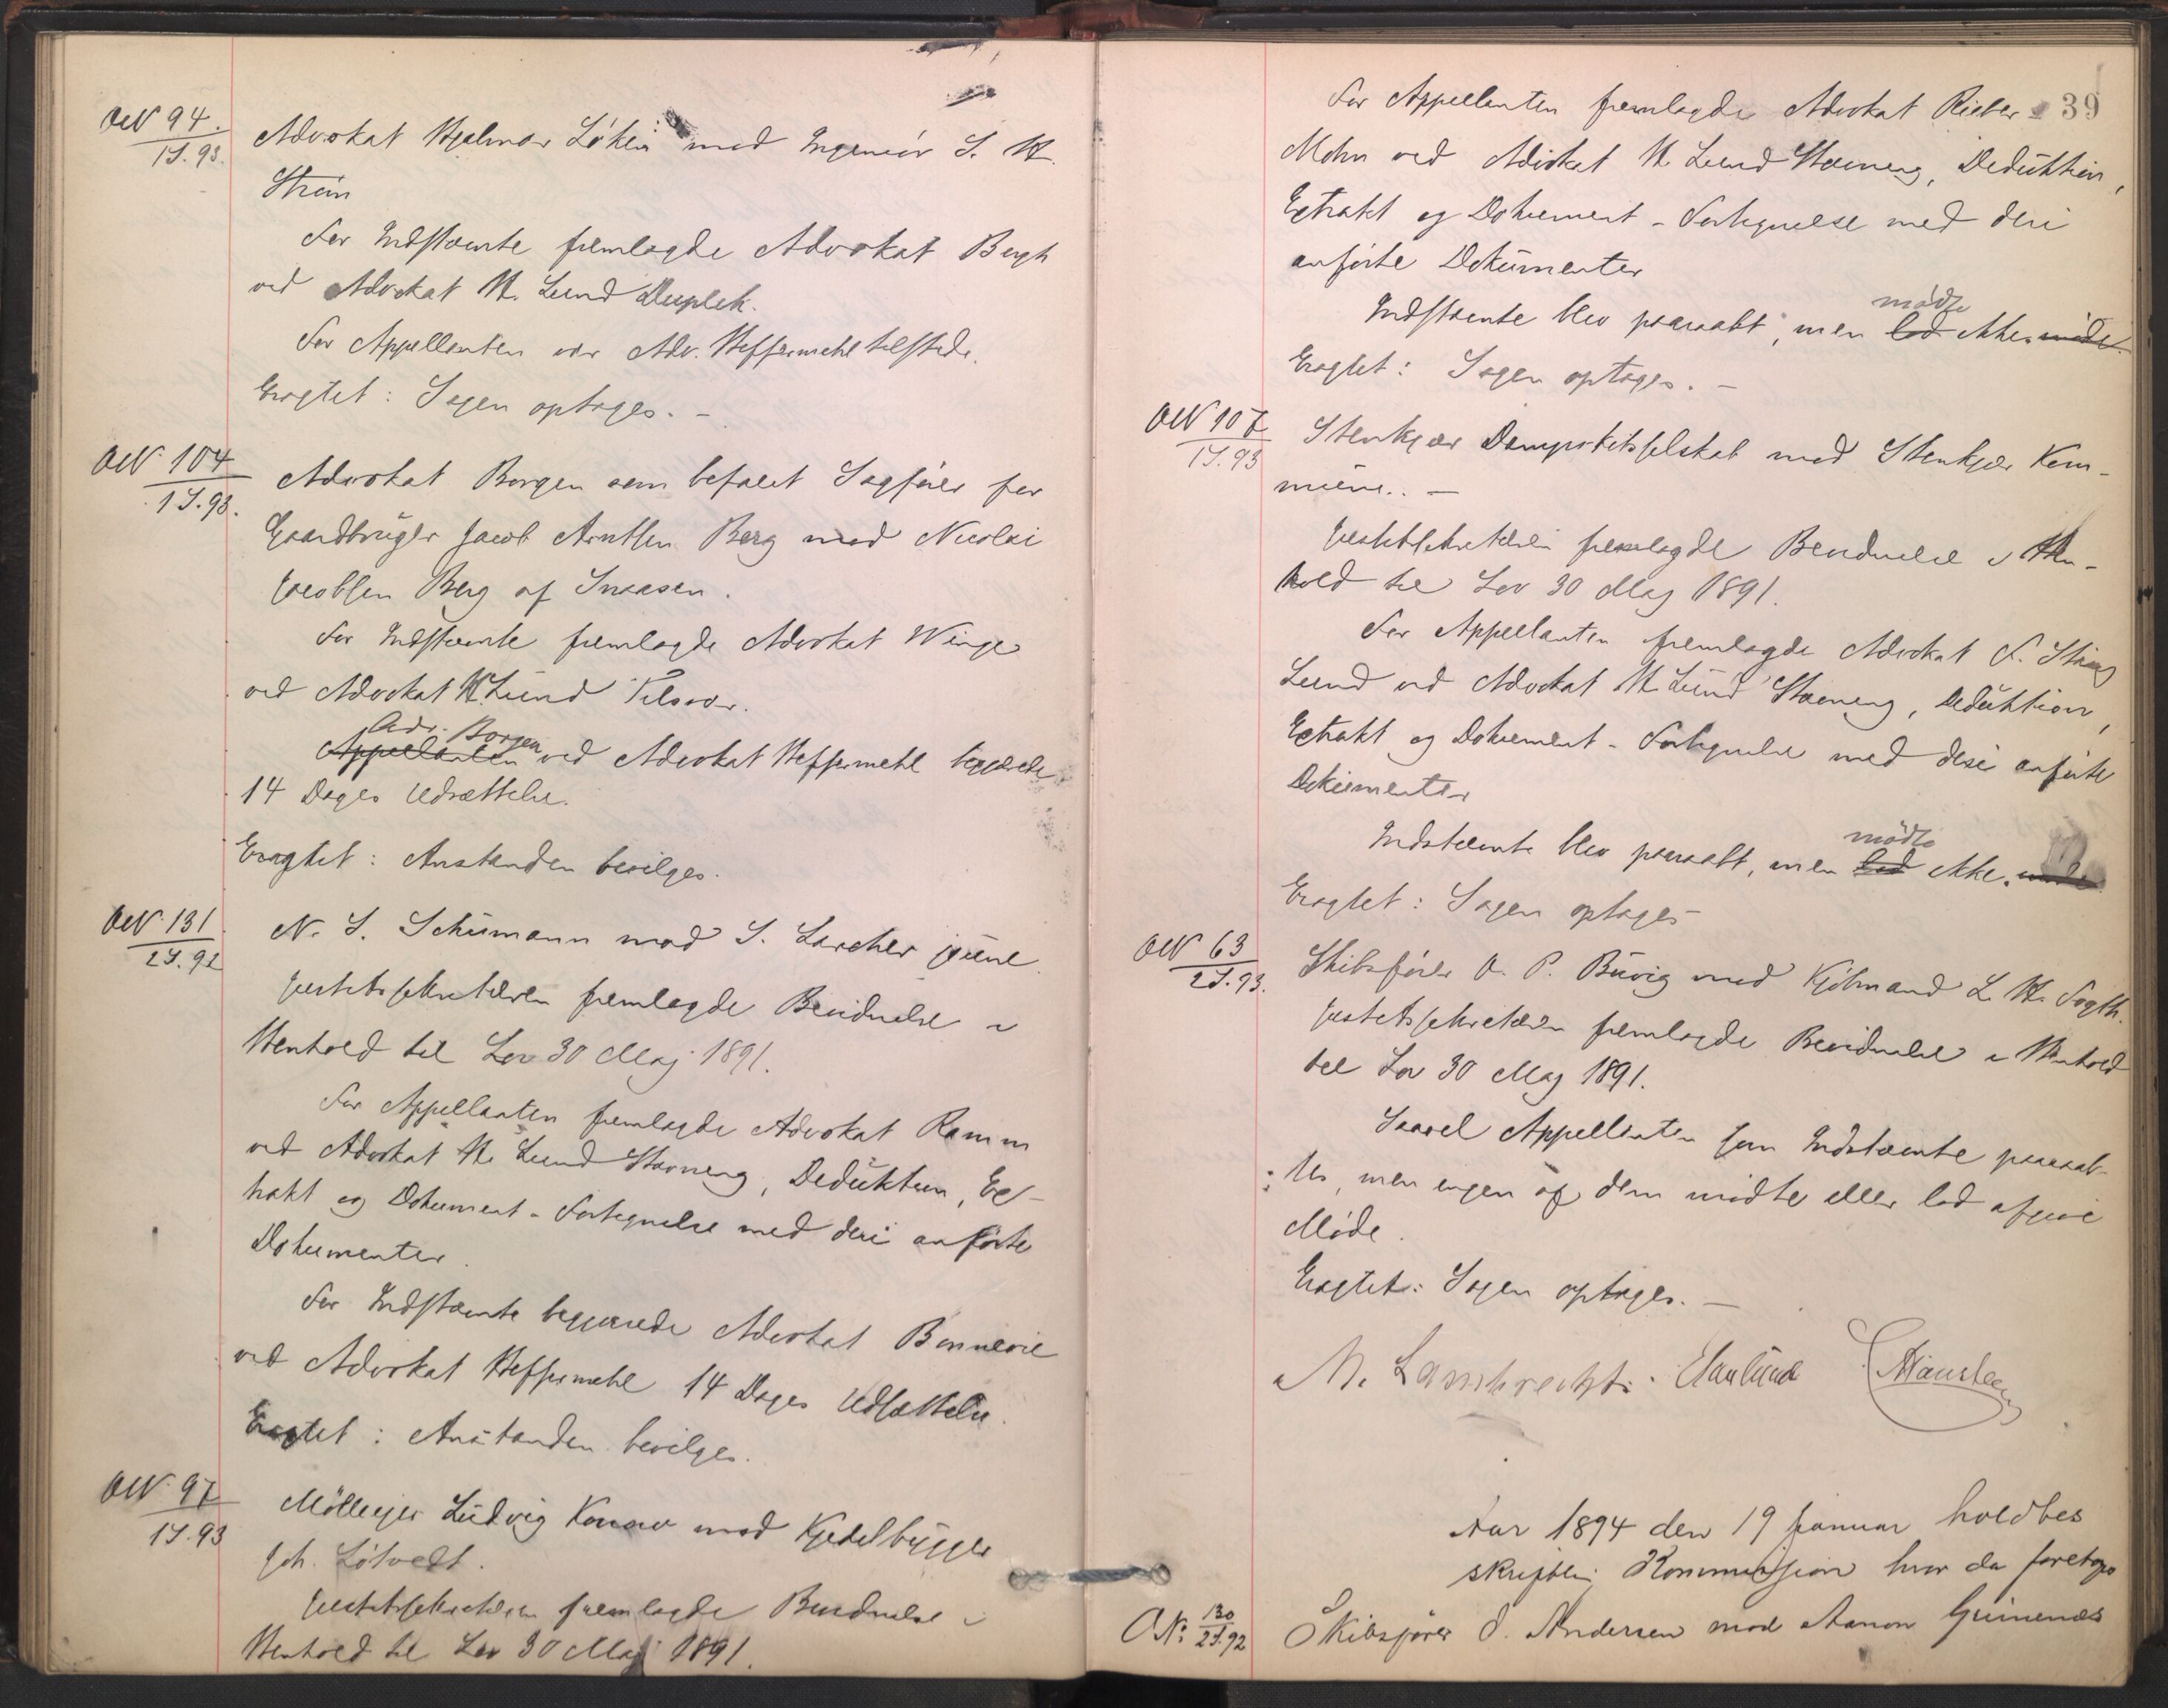 O N 94.
1S. 93.
Advokat Hjalmar Løken mod Ingeniør S. H.
Strøm
For Indstævnte fremlagde Advokat Bergh
ved Advokat H. Lund Duplik.
For Appellanten var Adv. Heffermehl tilstede.
Eragtet: Sagen optages. -
O N 104
1S. 93.
Advokat Borgen som befalet Sagfører for
Gaardbruger Jacob Arntsen Berg mod Nicolai
Jacobsen Berg af Snaasen.
For Indstævnte fremlagde Advokat Winge
ved Advokat H. Lund Tilsvar.
Adv. Borgen
Appellanten ved Advokat Heffermehl begjærede
14 Dages Udsættelse.
Eragtet: Anstanden bevilges.
O N 131
2S. 92
N. S. Schumann mod S. Larcher junr.
Justitssekretæren fremlagde Bevidnelse i
Henhold til Lov 30 Maj 1891.
For Appellanten fremlagde Advokat Ramm
ved Advokat H. Lund Stævning, Deduktion, Ex-
trakt og Dokument-Fortegnelse med deri anførte
Dokumenter.
For Indstævnte begjærede Advokat Bonnevie
ved Advokat Heffermehl 14 Dages Udsættelse.
Eragtet: Anstanden bevilges.
O N 97
1S. 93
Mølleejer Ludvig Konow mod Kjedelbygger
Joh. Løtvedt.
Justitssekretæren fremlagde Bevidnelse i
Henhold til Lov 30 Maj 1891.
39
For Appellanten fremlagde Advokat Rieber-
Mohn ved Advokat H. Lund Stævning, Deduktion,
Extrakt og Dokument-Fortegnelse med deri
anførte Dokumenter
mødte
Indstævnte blev paaraabt, men lod ikke møde.
Eragtet: Sagen optages. -
O N 107
1S. 93
Stenkjær Dampskibsselskab mod Stenkjær Kom-
mune. -
Justitssekretæren fremlagde Bevidnelse i Hen-
hold til Lov 30 Maj 1891.
For Appellanten fremlagde Advokat F. Stang
Lund ved Advokat H. Lund Stævning, Deduktion,
Extrakt og Dokument-Fortegnelse med deri anførte
Dokumenter
mødte
Indstævnte blev paaraabt, men lod ikke møde
Eragtet: Sagen optages
O N 63
2S. 93.
Skibsfører O. P. Buvig mod Kjøbmand L. H. Fogth.
Justitssekretæren fremlagde Bevidnelse i Henhold
til Lov 30 Maj 1891.
Saavel Appellanten som Indstævnte paaraab-
tes, men ingen af dem mødte eller lod afgive
Møde.
Eragtet: Sagen optages. -
M. Lambrechts.
Aar 1894 den 19 Januar holdtes
skriftlig Kommission hvor da foretoges
O N: 130
2S. 92
Skibsfører O. Andersen mod Aanon Grimenæs